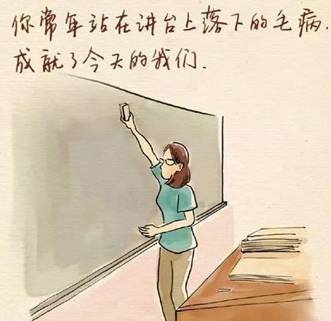 你常年站在讲台上落下的毛病.
成就了今天的我们.